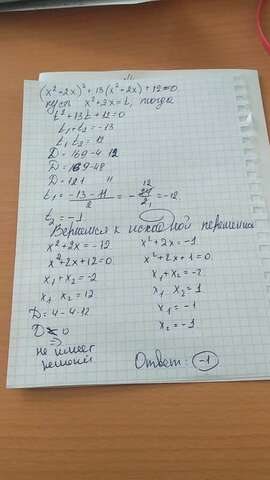 (x²+2x)²+13(x²+2x)+12=0
пусть x²+2x=t, тогда
t²+13t+12=0
t₁+t₂=-13
t₁ t₂=12
D=169-4·12
D=169-48
D=121
t₁=(-13-11)/2=-24/2=-12
t₂=-1
Вернёмся к исходной
x²+2x=-12
x²+2x+12=0
x₁+x₂=-2
x₁ x₂=12
D=4-4·12
D<0
=>
не имеет
решений
x²+2x=-1
x²+2x+1=0
x₁+x₂=-2
x₁ x₂=1
x₁=-1
x₂=-1
Ответ: -1